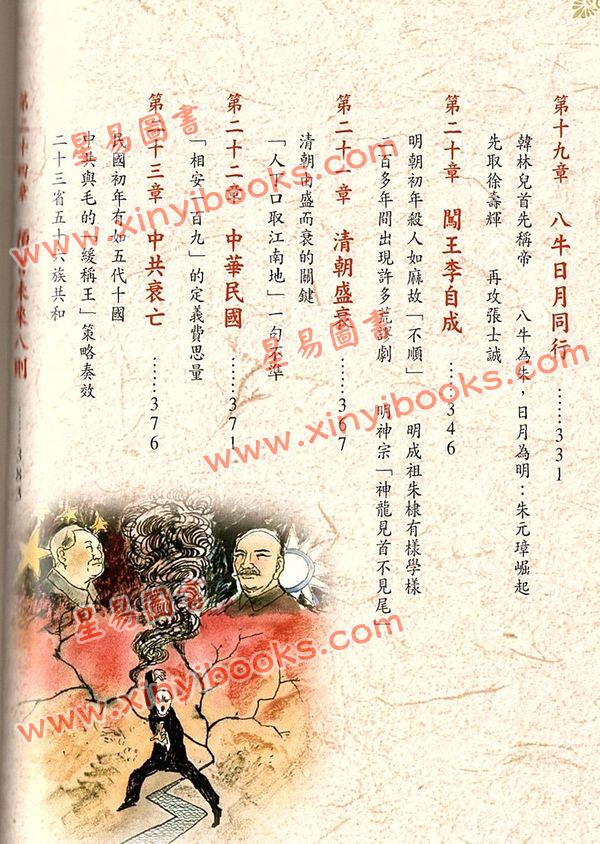 第十九章　八牛日月同行　……331
韓林兒首先稱帝　八牛為朱，日月為明：朱元璋崛起
先取徐壽輝　再攻張士誠
第二十章　闖王李自成　……346
明朝初年殺人如麻故「不順」　明成祖朱棣有樣學樣
二百多年間出現許多荒謬劇　明神宗「神龍見首不見尾」
第二十一章　清朝盛衰　……367
清朝由盛而衰的關鍵
「人丁口取江南地」一句不準
第二十二章　中華民國　……371
「相安一百九」的定義費思量
第二十三章　中共衰亡　……376
民國初年有如五代十國
中共與毛的「緩稱王」策略奏效
二十三省五十六族共和
第二十四章　未來八則
星易圖書
www.xinyibooks.com
星易圖書
www.xinyibooks.com
星易圖書
www.xinyibooks.com